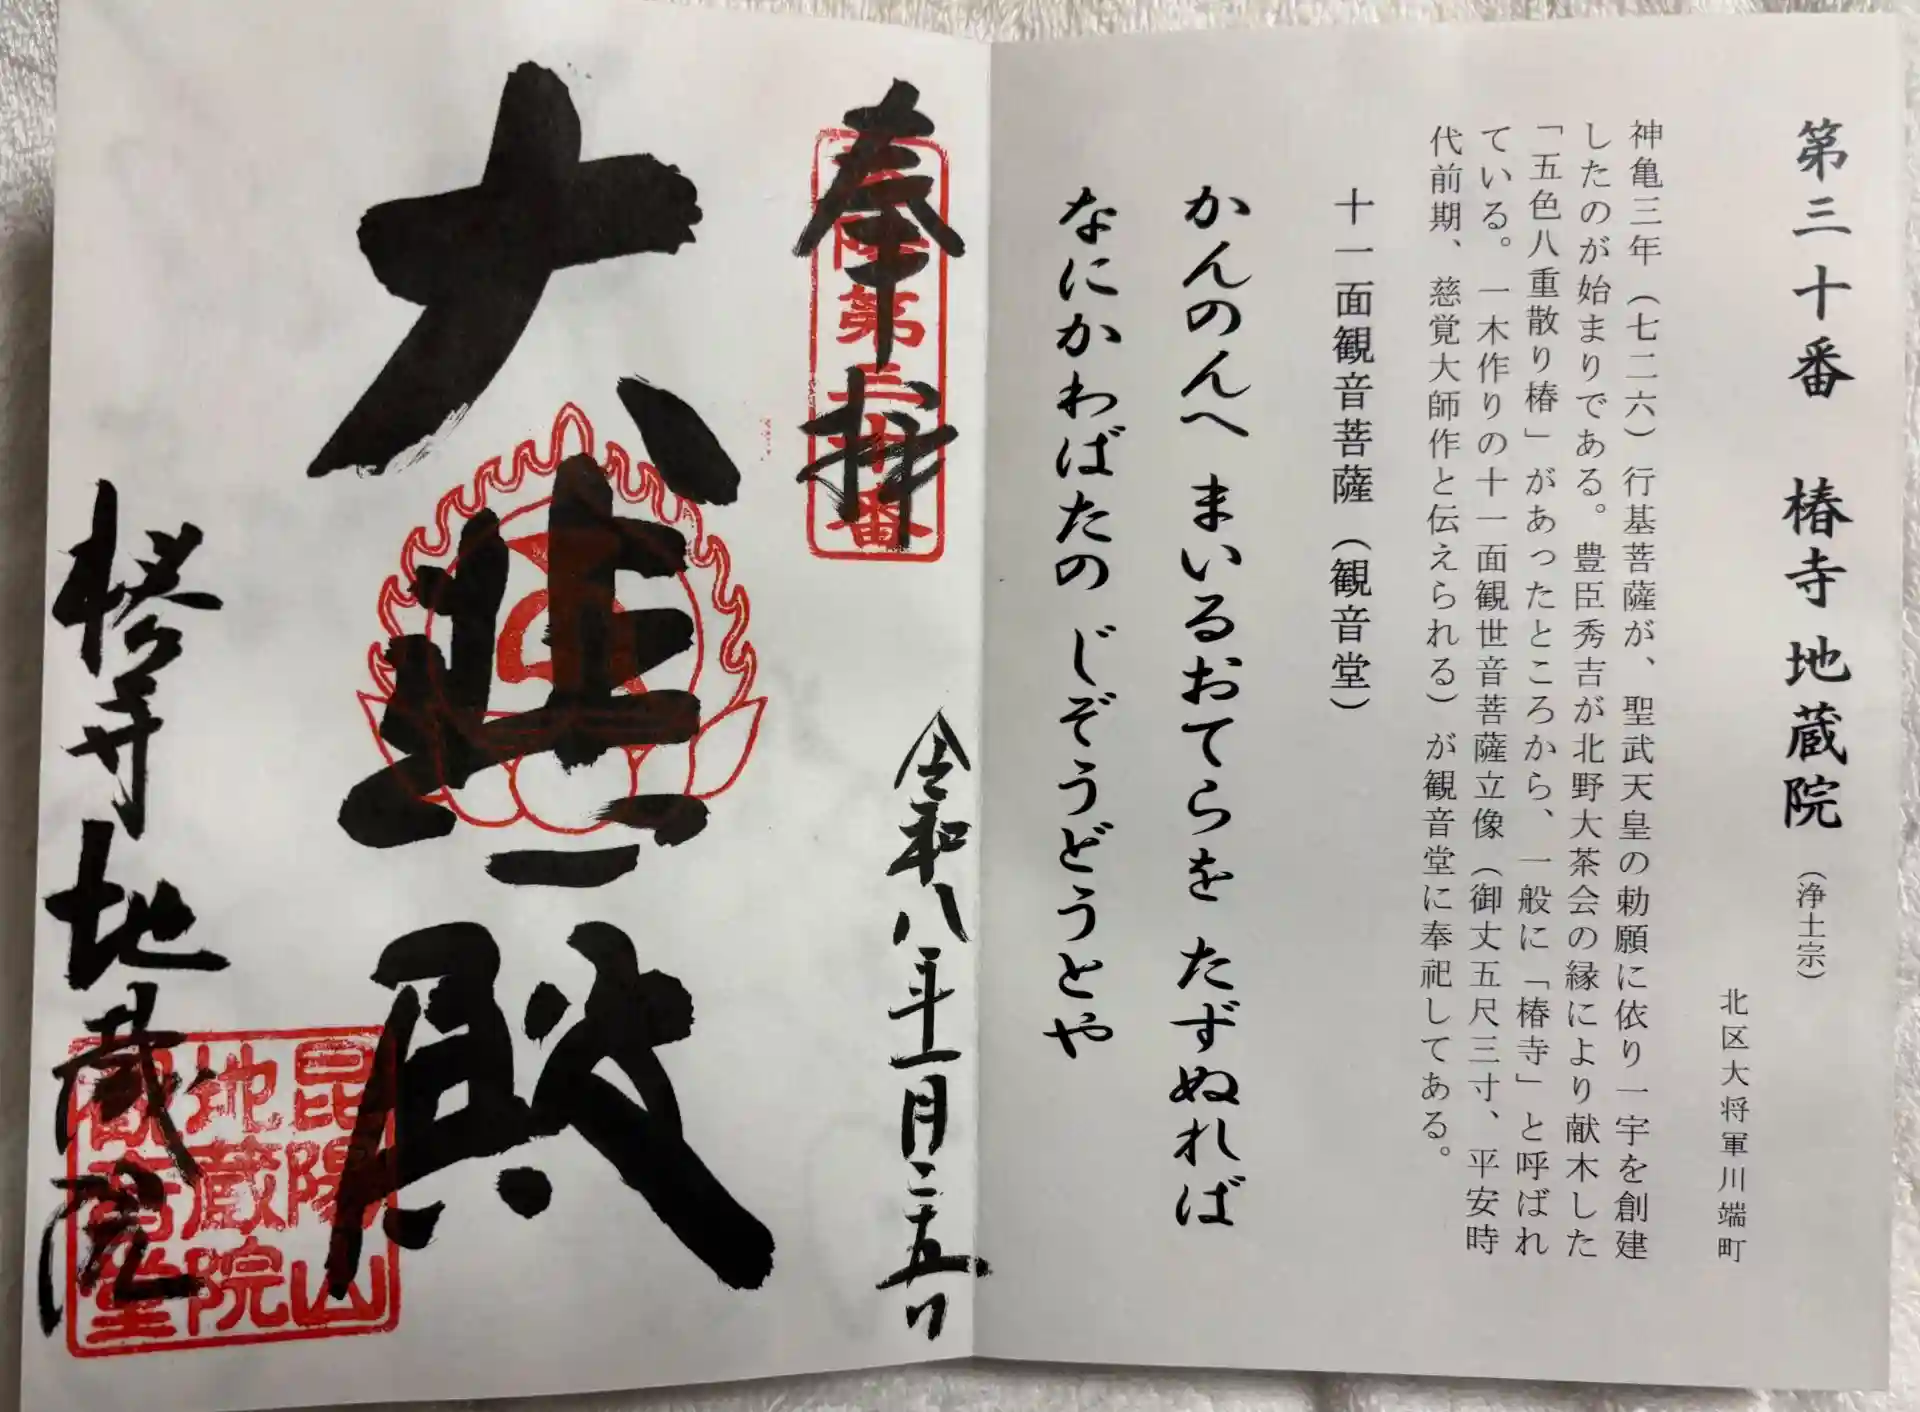 第三十番 椿寺 地蔵院 （浄土宗）
北区大将軍川端町
神亀三年（七二六）行基菩薩が、聖武天皇の勅願に依り一宇を創建
したのが始まりである。豊臣秀吉が北野大茶会の縁により献木した
「五色八重散り椿」があったところから、一般に「椿寺」と呼ばれ
ている。一木作りの十一面観世音菩薩立像（御丈五尺三寸、平安時
代前期、慈覚大師作と伝えられる）が観音堂に奉祀してある。
十一面観音菩薩（観音堂）
かんのんへ まいるおてらを たずぬれば
なにかわばたの じぞうどうとや
奉拝
第三十番
令和八年一月二十五日
大悲殿
椿寺 地蔵院
昆陽山
地蔵院
観音堂